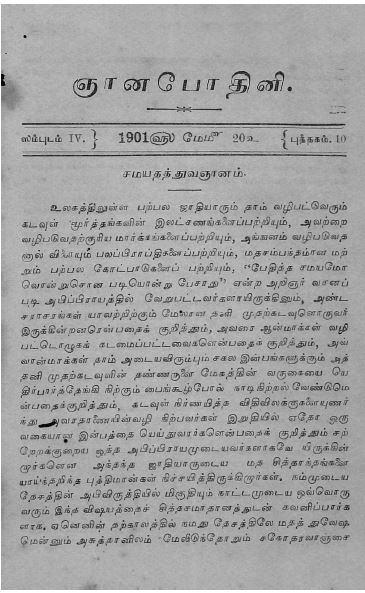 ஞானபோதினி.
ஸம்புடம் IV. } 1901௵ மே௴ 20௳ { புத்தகம். 10
சமயதத்துவஞானம்.
உலகத்திலுள்ள பற்பல ஜாதியாரும் தாம் வழிபட்டுவரும்
கடவுள் மூர்த்தங்களின் இலட்சணங்களைப்பற்றியும், அவற்றை
வழிபடுவதற்குரிய மார்க்கங்களைப்பற்றியும், அங்ஙனம் வழிபடுவத
னால் விளையும் பலப்பிராப்திகளைப்பற்றியும், மதசம்பந்தமான மற்
றும் பற்பல கோட்பாடுகளைப் பற்றியும், "பேதித்த சமயமோ
வொன்றுசொன படியொன்று பேசாது" என்ற அறிஞர் வசனப்
படி அபிப்பிராயத்தில் வேறுபட்டவர்களாயிருக்கினும், அண்ட
சராசரங்கள் யாவற்றிற்கும் மேலான தனி முதற்கடவுளொருவர்
இருக்கின்றனரென்பதைக் குறித்தும், அவரை ஆன்மாக்கள் வழி
பட்டொழுகக் கடமைப்பட்டவைகளென்பதைக் குறித்தும், அவ்
வான்மாக்கள் தாம் அடையவிரும்பும் சகல இன்பங்களுக்கும் அத்
தனி முதற்கடவுளின் தண்ணருளை மேகத்தின் வருகையை யெ
திர்பார்த்தேங்கி நிற்கும் பைங்கூழ்போல் நாடிநிற்றல் வேண்டுமெ
ன்பதைக்குறித்தும், கடவுள் நிர்ணயித்த விதிவிலக்குகளையுணர்
ந்து அவரதாணையின்வழி நிற்பவர்கள் இறுதியில் ஏதோ ஒரு
வகையான இன்பத்தை யெய்துவார்களென்பதைக் குறித்தும் சற்
றேறக்குறைய ஒத்த அபிப்பிராயமுடையவர்களாகவே யிருக்கின்
றார்களென அந்தந்த ஜாதியாருடைய மத சித்தாந்தங்களை
யாய்ந்தறிந்த புத்திமான்கள் நிச்சயித்திருக்கிறார்கள். நம்முடைய
தேசத்தின் அபிவிருத்தியில் மிகுதியும் நாட்டமுடைய ஒவ்வொரு
வரும் இந்த விஷயத்தைச் சித்தசமாதானத்துடன் கவனிப்பார்க
ளாக. ஏனெனின் தற்காலத்தில் நமது தேசத்திலே மதத் துவேஷ
மென்னும் அசுத்தாவிலம் மேலிடுந்தோறும் சகோதரவாஞ்சை